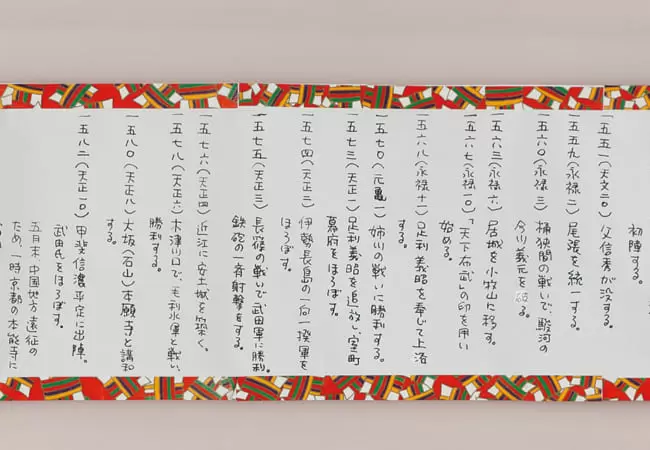 初陣する。
一五五一(天文二〇) 父信秀が没する。
一五五九(永禄二) 尾張を統一する。
一五六〇(永禄三) 桶狭間の戦いで、駿河の
今川義元を破る。
一五六三(永禄六) 居城を小牧山に移す。
一五六七(永禄一〇)「天下布武」の印を用い
始める。
一五六八(永禄十一) 足利義昭を奉じて上洛
する。
一五七〇(元亀一) 姉川の戦いに勝利する。
一五七三(天正一) 足利義昭を追放し、室町
幕府をほろぼす。
一五七四(天正二) 伊勢長島の一向一揆軍を
ほろぼす。
一五七五(天正三) 長篠の戦いで武田軍に勝利。
鉄砲の一斉射撃をする。
一五七六(天正四) 近江に安土城を築く。
一五七八(天正六) 木津川口で、毛利水軍と戦い、
勝利する。
一五八〇(天正八) 大坂(石山)本願寺と講和
する。
一五八二(天正一〇) 甲斐信濃平定に出陣。
武田氏をほろぼす。
五月末、中国地方遠征の
ため、一時京都の本能寺に